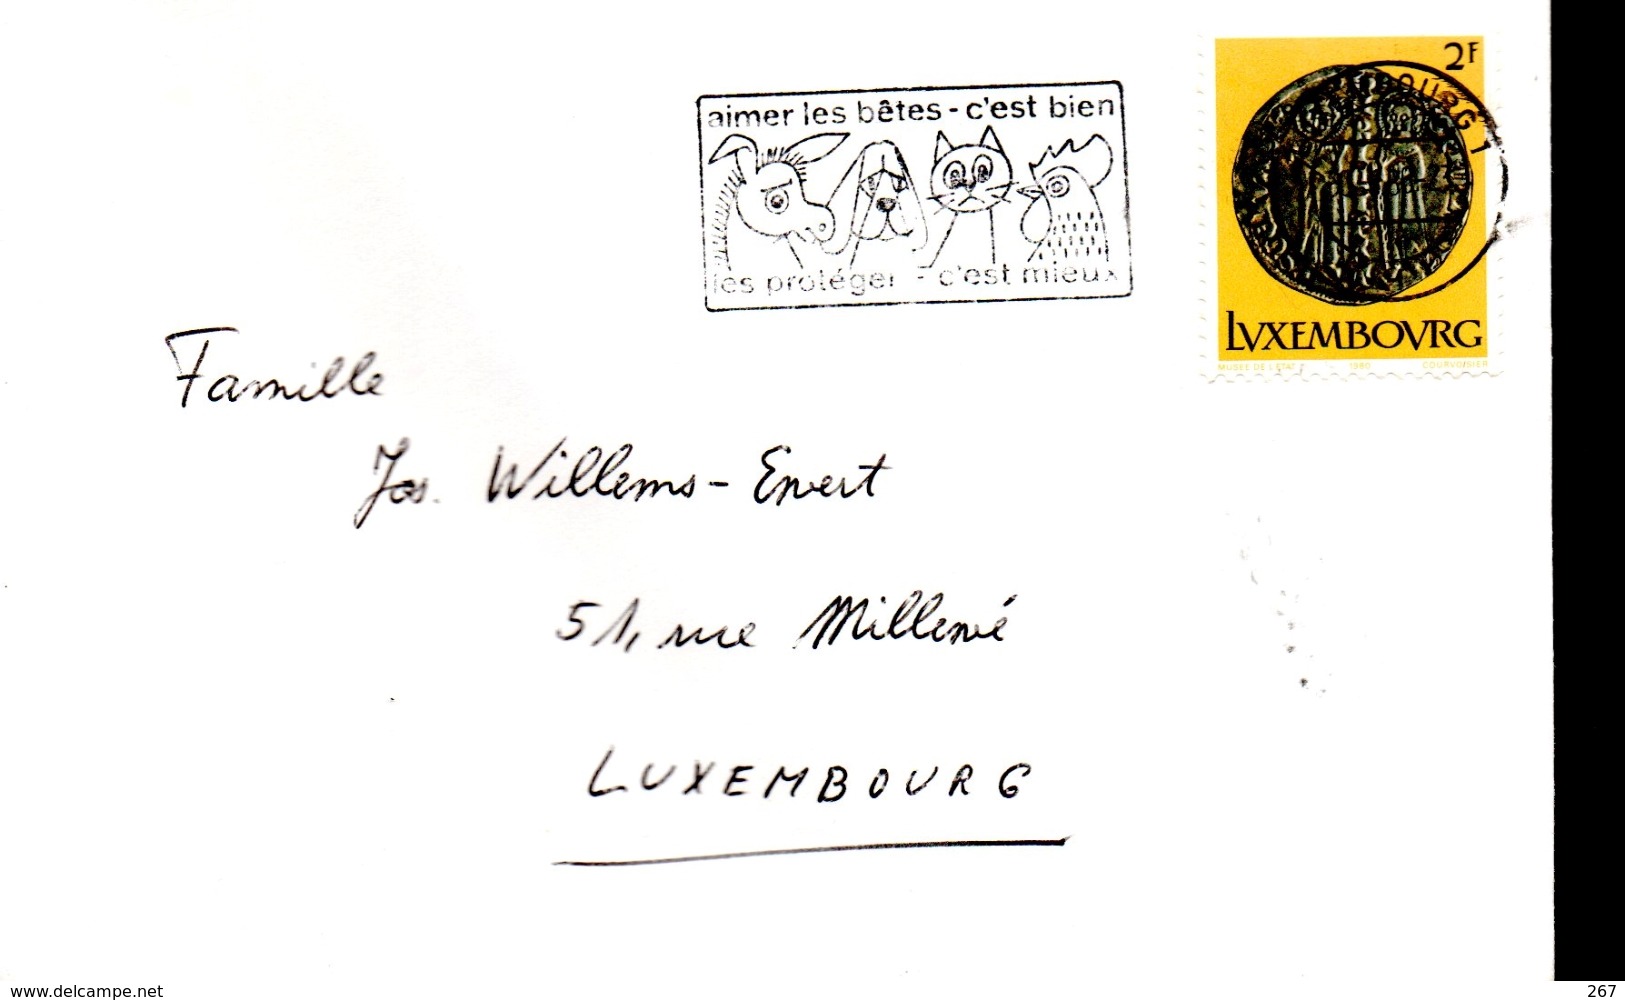 aimer les bêtes - c'est bien
les protéger - c'est mieux
2F
LVXEMBOVRG
MUSÉE DE L'ETAT 1980 COURVOISIER
Famille
Jos. Willems - Evert
51, rue Millewé
LUXEMBOURG
www.delcampe.net
267